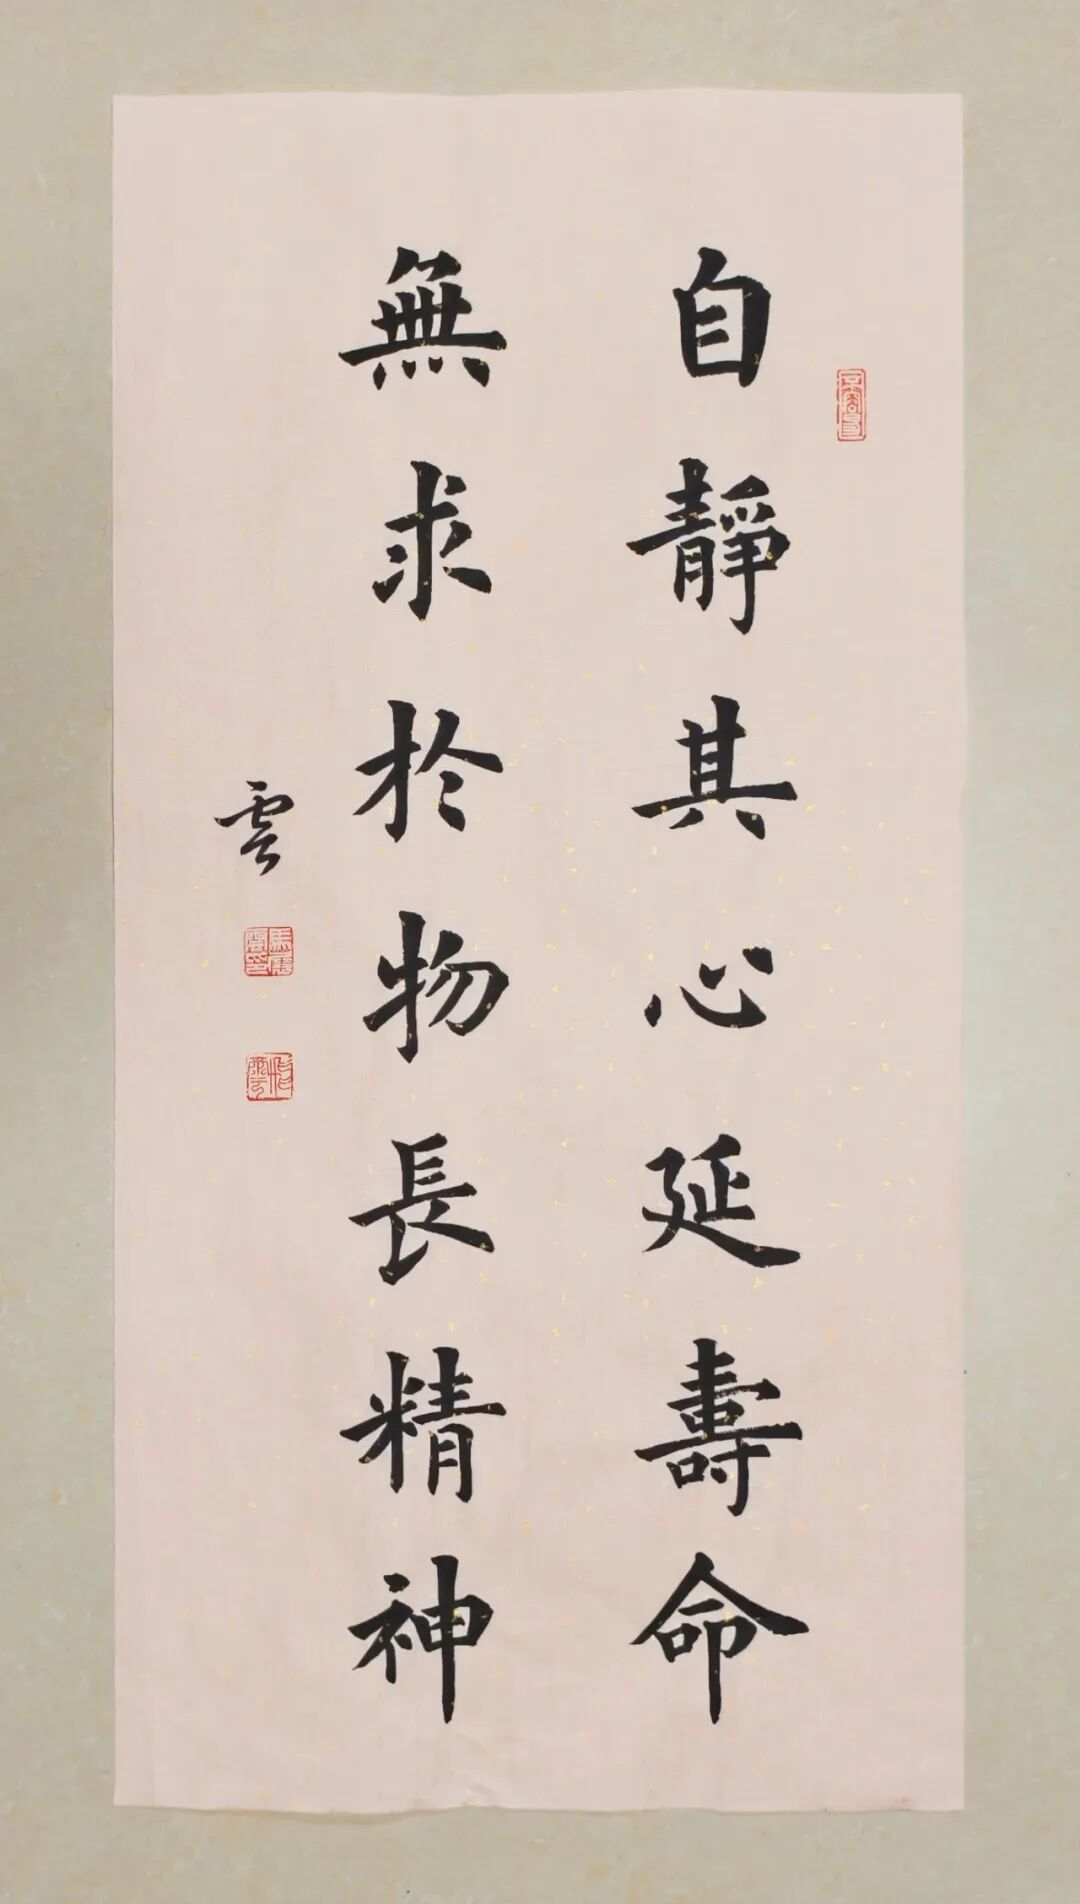 自靜其心延壽命
無求於物長精神
雲